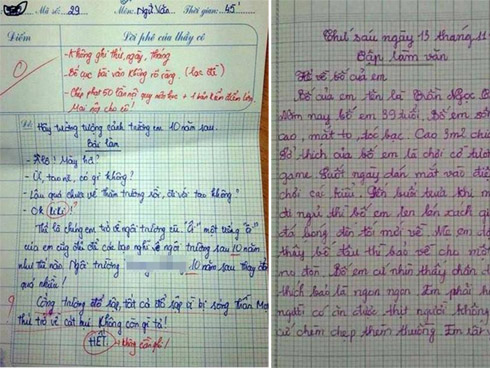 Mã số: 29 Môn: Ngữ Văn Thời gian: 45'
Điểm
Lời phê của thầy cô
0
- Không ghi thứ, ngày, tháng
- Bố cục bài văn không rõ ràng. (lạc đề)
- Chép phạt 50 lần nội quy + 1 bản kiểm điểm
Mai nộp cho cô!
Đề: Hãy tưởng tượng cảnh trường em 10 năm sau.
Bài làm
- Alô! Mày hả?
- Ừ, tao nè, có gì không?
- Lâu quá chưa về thăm trường rồi, đi với tao không?
- Ok luôn!
Thế là chúng em trở về ngôi trường cũ. "Á" một tiếng "á"
của em cũng đủ để các bạn nghĩ về ngôi trường sau 10 năm
như thế nào. Ngôi trường 10 năm sau thay đổi
quá nhiều!
Cổng trường đổ sập, tất cả đổ sập à bị sóng Trần
thứ trở về cát bụi. Không còn gì to!
HẾT
không cần ghi!
Thứ sáu ngày 13 tháng 11
Tập làm văn
Tả về bố của em
Bố của em tên là Trần Ngọc
Năm nay bố em 39 tuổi. Bố em
cao, mắt to, tóc bạc. Cao 3m
Sở thích của bố em là chơi cờ tướng
game. Suốt ngày dán mắt vào điện
chơi Đến buổi trưa khi
đi ngủ thì bố em lén lấy xách
đá bóng đến tối mới về. Mẹ em
thấy bố đâu thì bảo vệ cho một
no đòn. Bố em cứ nhìn thấy chân
thích bảo là ngon ngon. Em phải
người có ăn được thịt người không
cứ chem chép thèm thuồng. Em rất